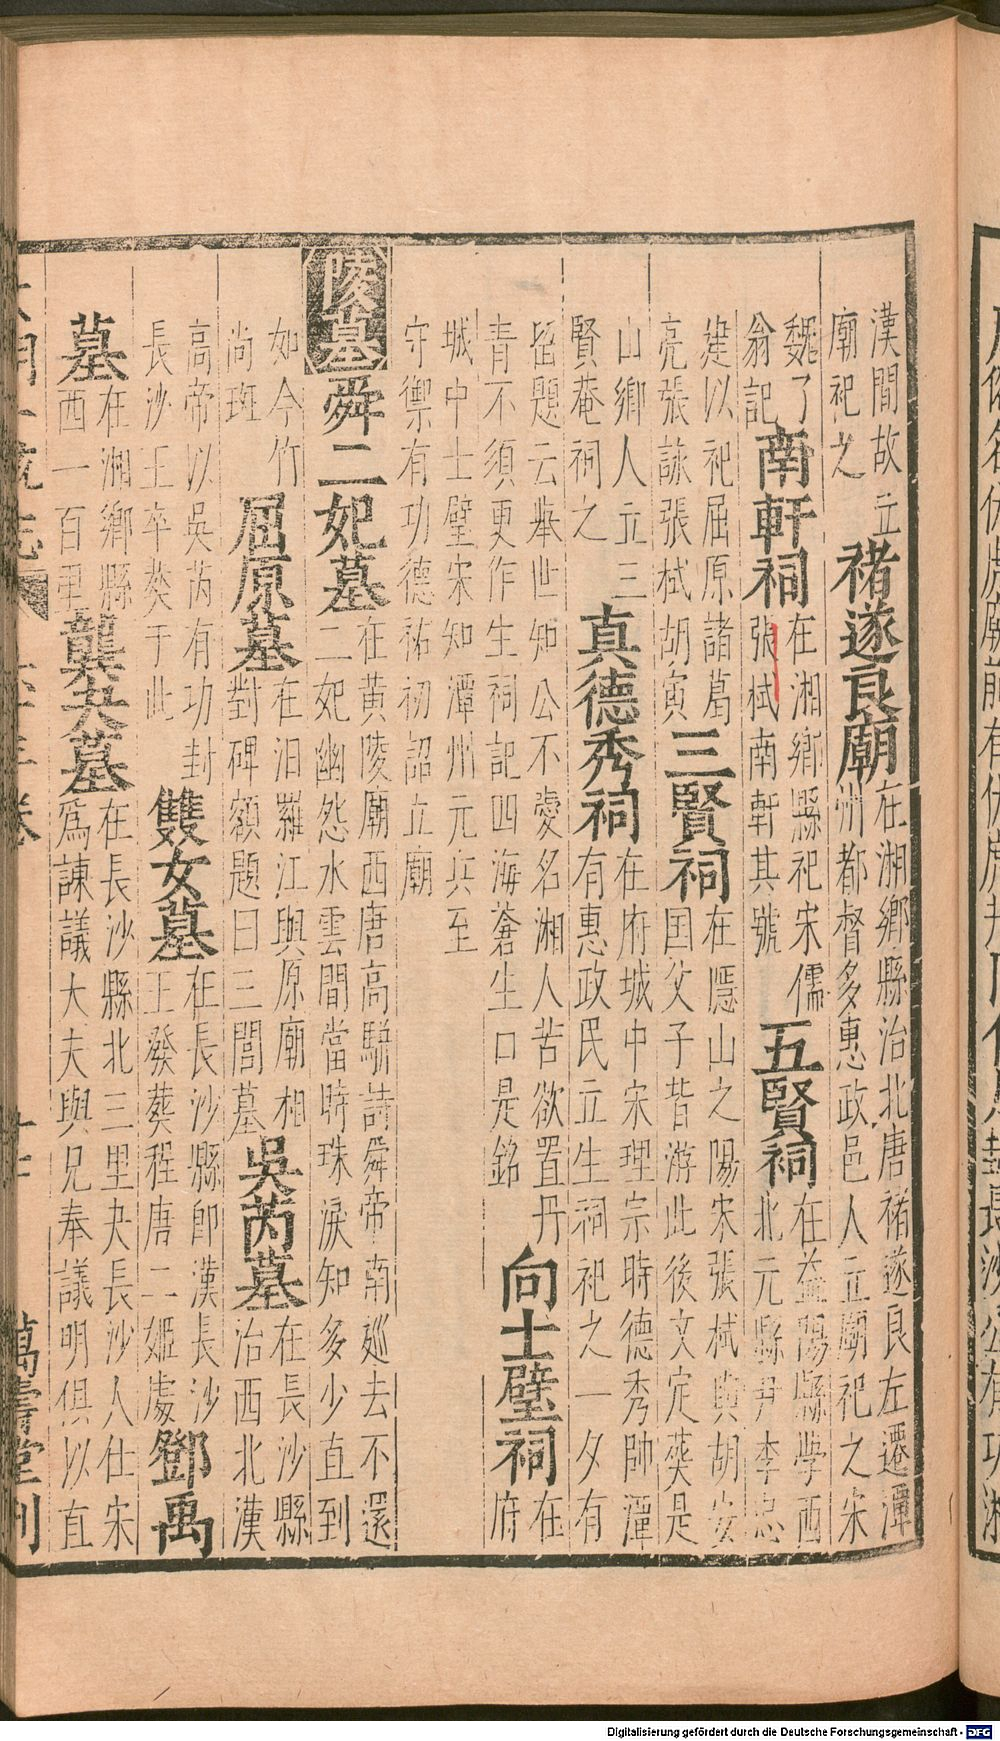 漢間故立
廟祀之
褚遂良廟
在湘鄉縣治北唐褚遂良左遷潭
州都督多惠政邑人立廟祀之宋
魏了
翁記
南軒祠
在湘鄉縣祀宋儒
張栻南軒其號
五賢祠
在益陽縣學西
北元縣尹李忠
建以祀屈原諸葛
亮張詠張栻胡寅
三賢祠
在隱山之陽宋張栻與胡安
国父子皆游此後文定葬是
山鄉人立三
賢菴祠之
真德秀祠
在府城中宋理宗時德秀帥潭
有惠政民立生祠祀之一夕有
留題云舉世知公不愛名湘人苦欲置丹
青不須更作生祠記四海蒼生口是銘
向士璧祠
在
府
城中士璧宋知潭州元兵至
守禦有功德祐初詔立廟
陵墓
舜二妃墓
在黃陵廟西唐高駢詩舜帝南廵去不還
二妃幽怨水雲間當時珠淚知多少直到
如今竹
尚斑
屈原墓
在汨羅江與原廟相
對碑額題曰三閭墓
吳芮墓
在長沙縣
治西北漢
高帝以吳芮有功封
長沙王卒葬于此
雙女墓
在長沙縣卽漢長沙
王發葬程唐二姬處
鄧禹
墓
在湘鄉縣
西一百里
龔夬墓
在長沙縣北三里夬長沙人仕宋
爲諫議大夫與兄奉議明俱以直
萬壽堂刊
Digitalisierung gefördert durch die Deutsche Forschungsgemeinschaft - DFG